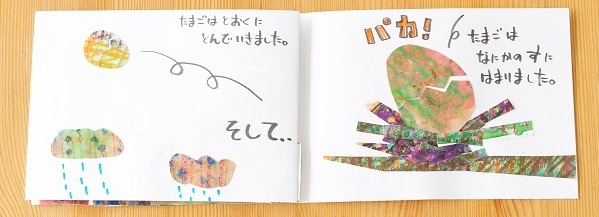 たまごはとおくに
とんでいきました。
そして、、
パカ!
たまごは
なにかのすに
はまりました。